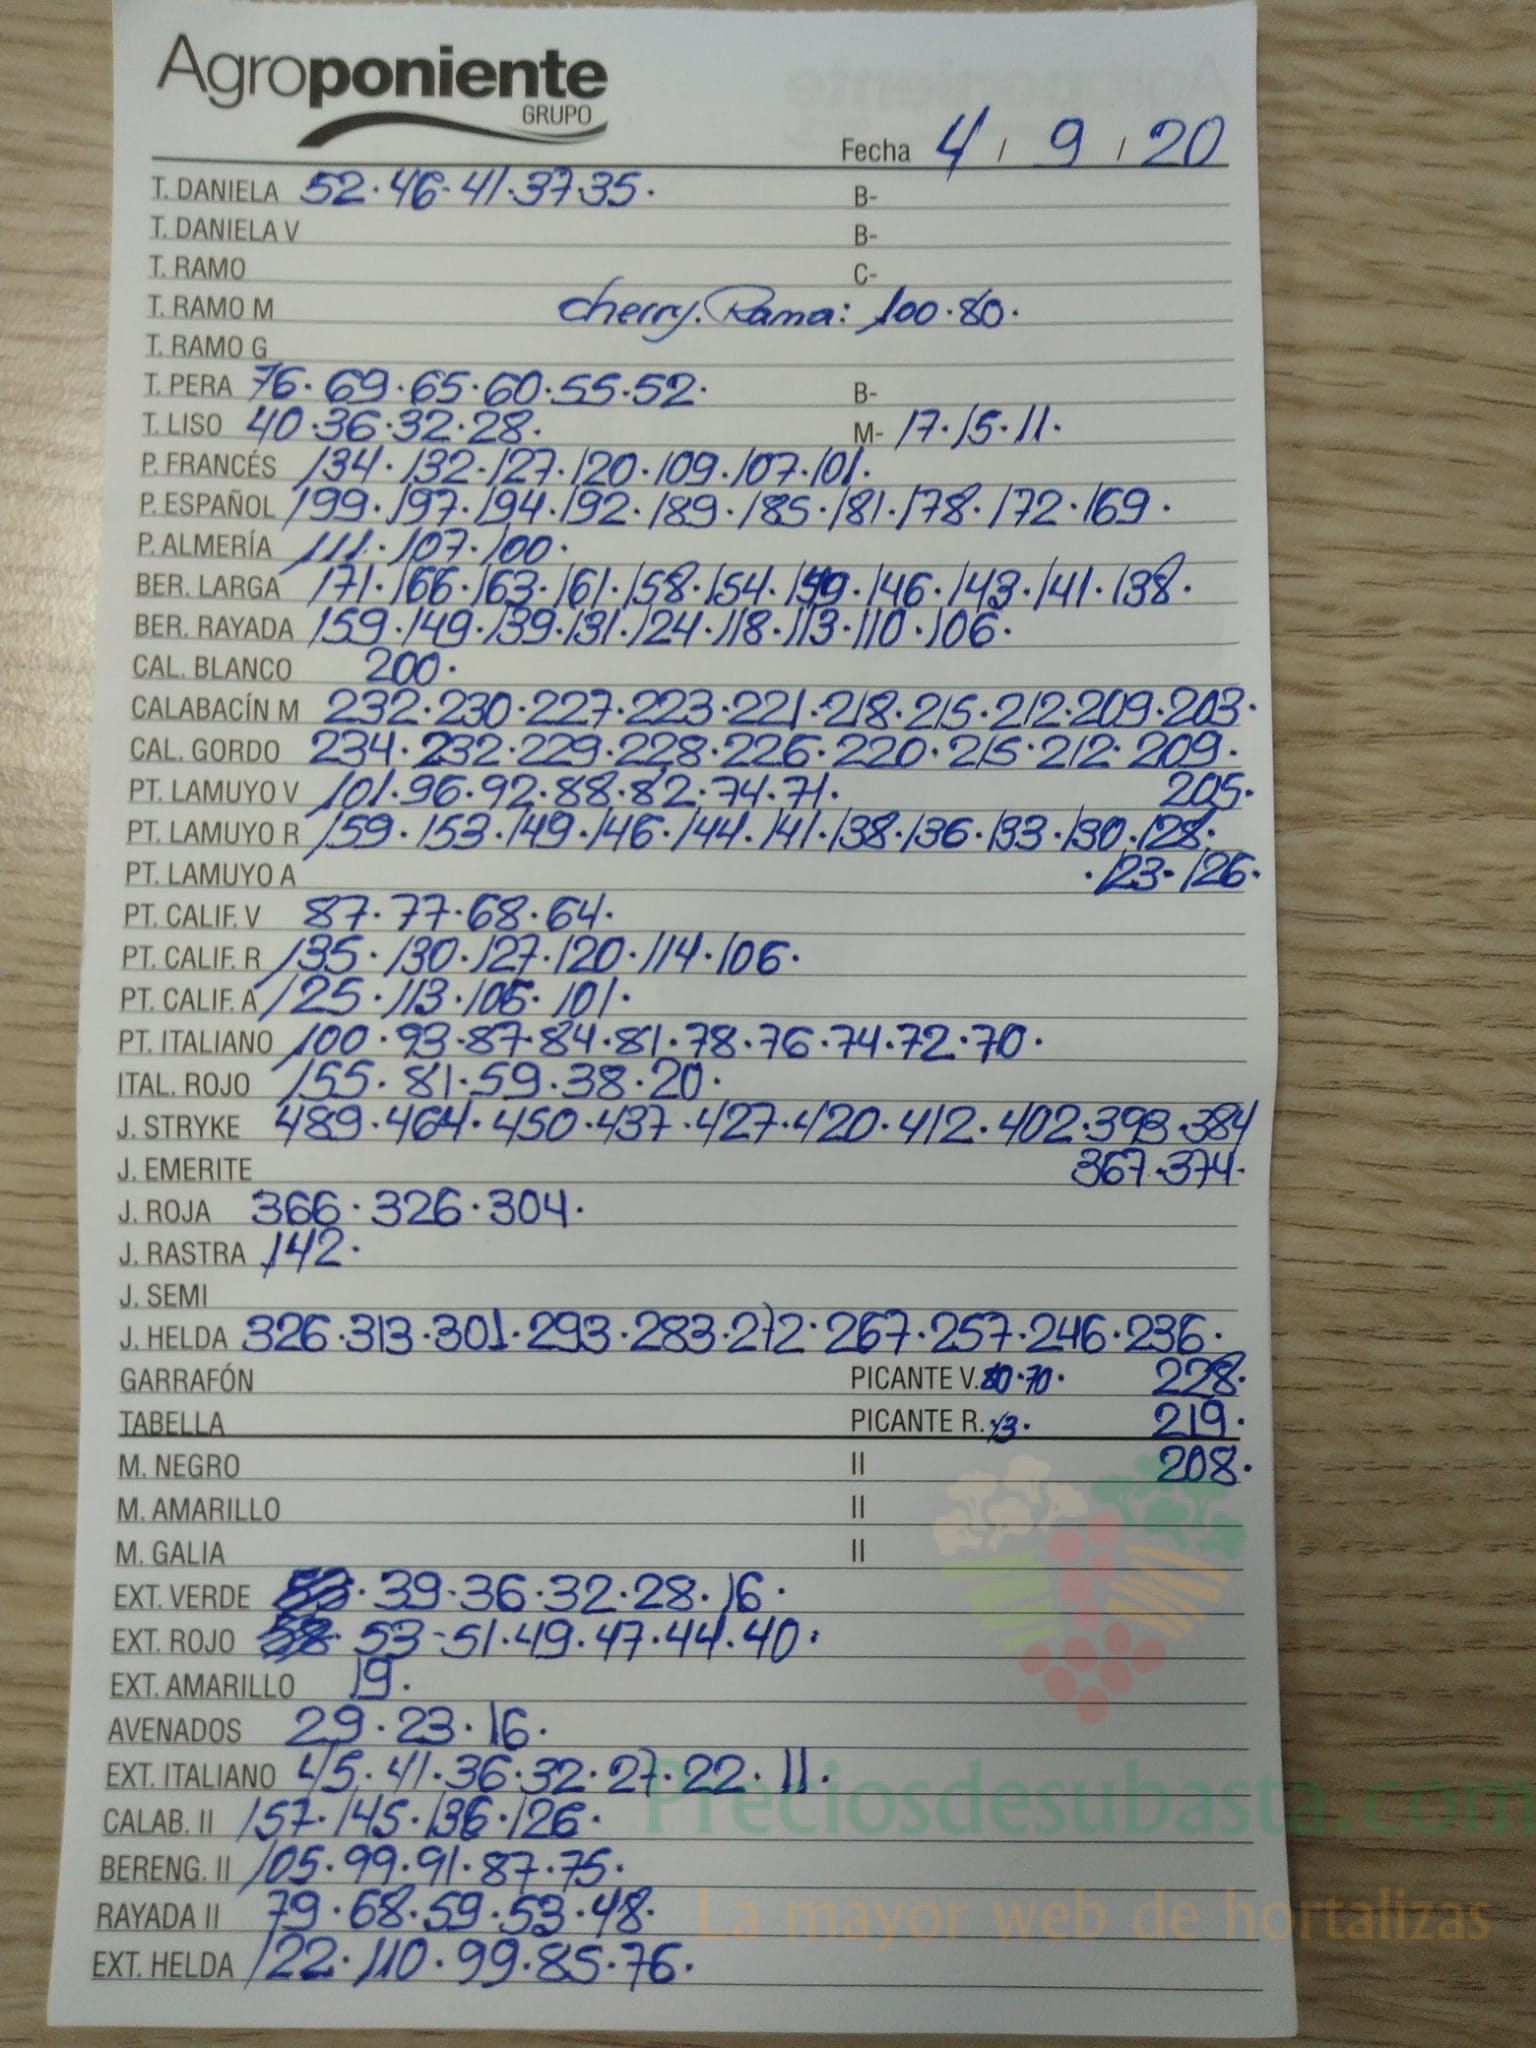 Agroponiente
GRUPO
Fecha 4 / 9 / 20
T. DANIELA 52·46·41·37·35· B-
T. DANIELA V B-
T. RAMO C-
T. RAMO M cherry. Rama: 100·80·
T. RAMO G
T. PERA 76·69·65·60·55·52· B-
T. LISO 40·36·32·28· M- 17·15·11·
P. FRANCÉS 134·132·127·120·109·107·101·
P. ESPAÑOL 199·197·194·192·189·185·181·178·172·169·
P. ALMERÍA 111·107·100·
BER. LARGA 171·166·163·161·158·154·149·146·143·141·138·
BER. RAYADA 159·149·139·131·124·118·113·110·106·
CAL. BLANCO 200·
CALABACÍN M 232·230·227·223·221·218·215·212·209·203·
CAL. GORDO 234·232·229·228·226·220·215·212·209·
PT. LAMUYO V 101·96·92·88·82·74·71· 205·
PT. LAMUYO R 159·153·149·146·144·141·138·136·133·130·128·
PT. LAMUYO A ·123·126·
PT. CALIF. V 87·77·68·64·
PT. CALIF. R 135·130·127·120·114·106·
PT. CALIF. A 125·113·105·101·
PT. ITALIANO 100·93·87·84·81·78·76·74·72·70·
ITAL. ROJO 155·81·59·38·20·
J. STRYKE 489·464·450·437·427·420·412·402·393·384
J. EMERITE 367·374·
J. ROJA 366·326·304·
J. RASTRA 142·
J. SEMI
J. HELDA 326·313·301·293·283·272·267·257·246·236·
GARRAFÓN PICANTE V. 80·70· 228·
TABELLA PICANTE R. 219·
M. NEGRO II 208·
M. AMARILLO II
M. GALIA II
EXT. VERDE 39·36·32·28·16·
EXT. ROJO 53·51·49·47·44·40·
EXT. AMARILLO 19·
AVENADOS 29·23·16·
EXT. ITALIANO 45·41·36·32·27·22·11·
Preciosdesubasta.com
CALAB. II 157·145·136·126·
BERENG. II 105·99·91·87·75·
RAYADA II 79·68·59·53·48·
La mayor web de hortalizas
EXT. HELDA 122·110·99·85·76·